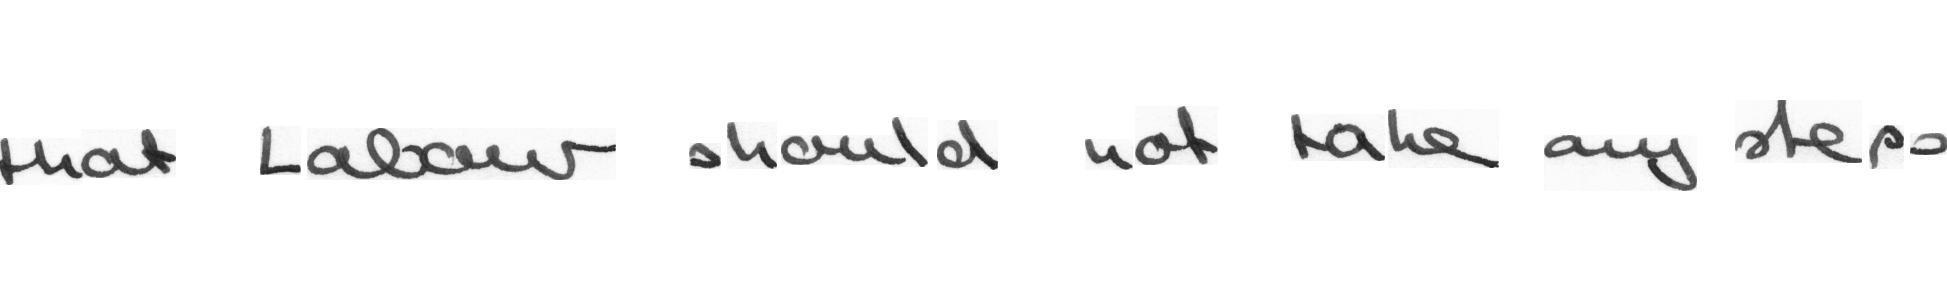 that Labour should not take any steps